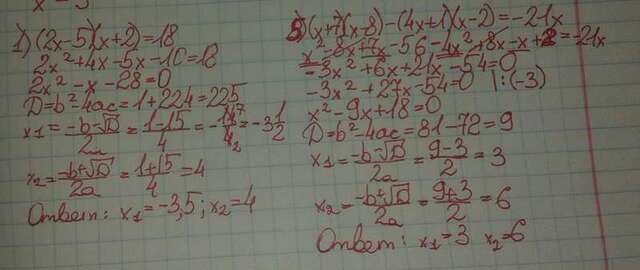 x - 3
1) (2x-5)(x+2)=18
2x²+4x-5x-10=18
2x²-x-28=0
D=b²-4ac=1+224=225
x1=(-b-√D)/2a=(1-15)/4=-14⁷/4₂=-3 1/2
x2=(-b+√D)/2a=(1+15)/4=4
Ответ: x1=-3,5; x2=4
5) (x+7)(x-8)-(4x+1)(x-2)=-21x
x²-8x+7x-56-4x²+8x-x+2=-21x
-3x²+6x+21x-54=0
-3x²+27x-54=0 |:(-3)
x²-9x+18=0
D=b²-4ac=81-72=9
x1=(-b-√D)/2a=(9-3)/2=3
x2=(-b+√D)/2a=(9+3)/2=6
Ответ: x1=3 x2=6